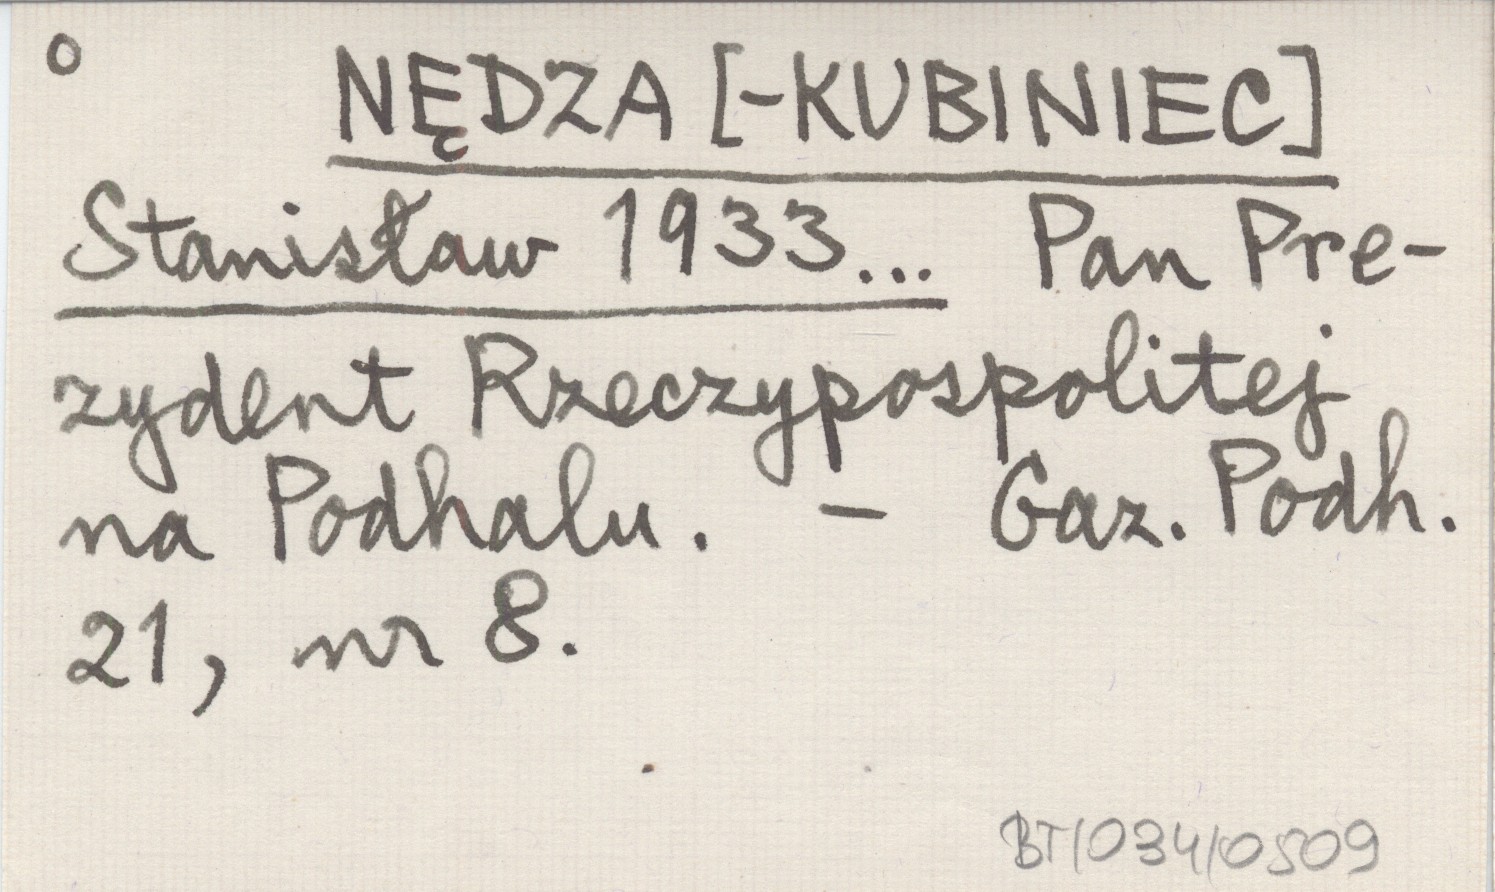 o NĘDZA [-KUBINIEC]
Stanisław 1933... Pan Pre-
zydent Rzeczypospolitej
na Podhalu. – Gaz. Podh.
21, nr 8.
BT/034/0509